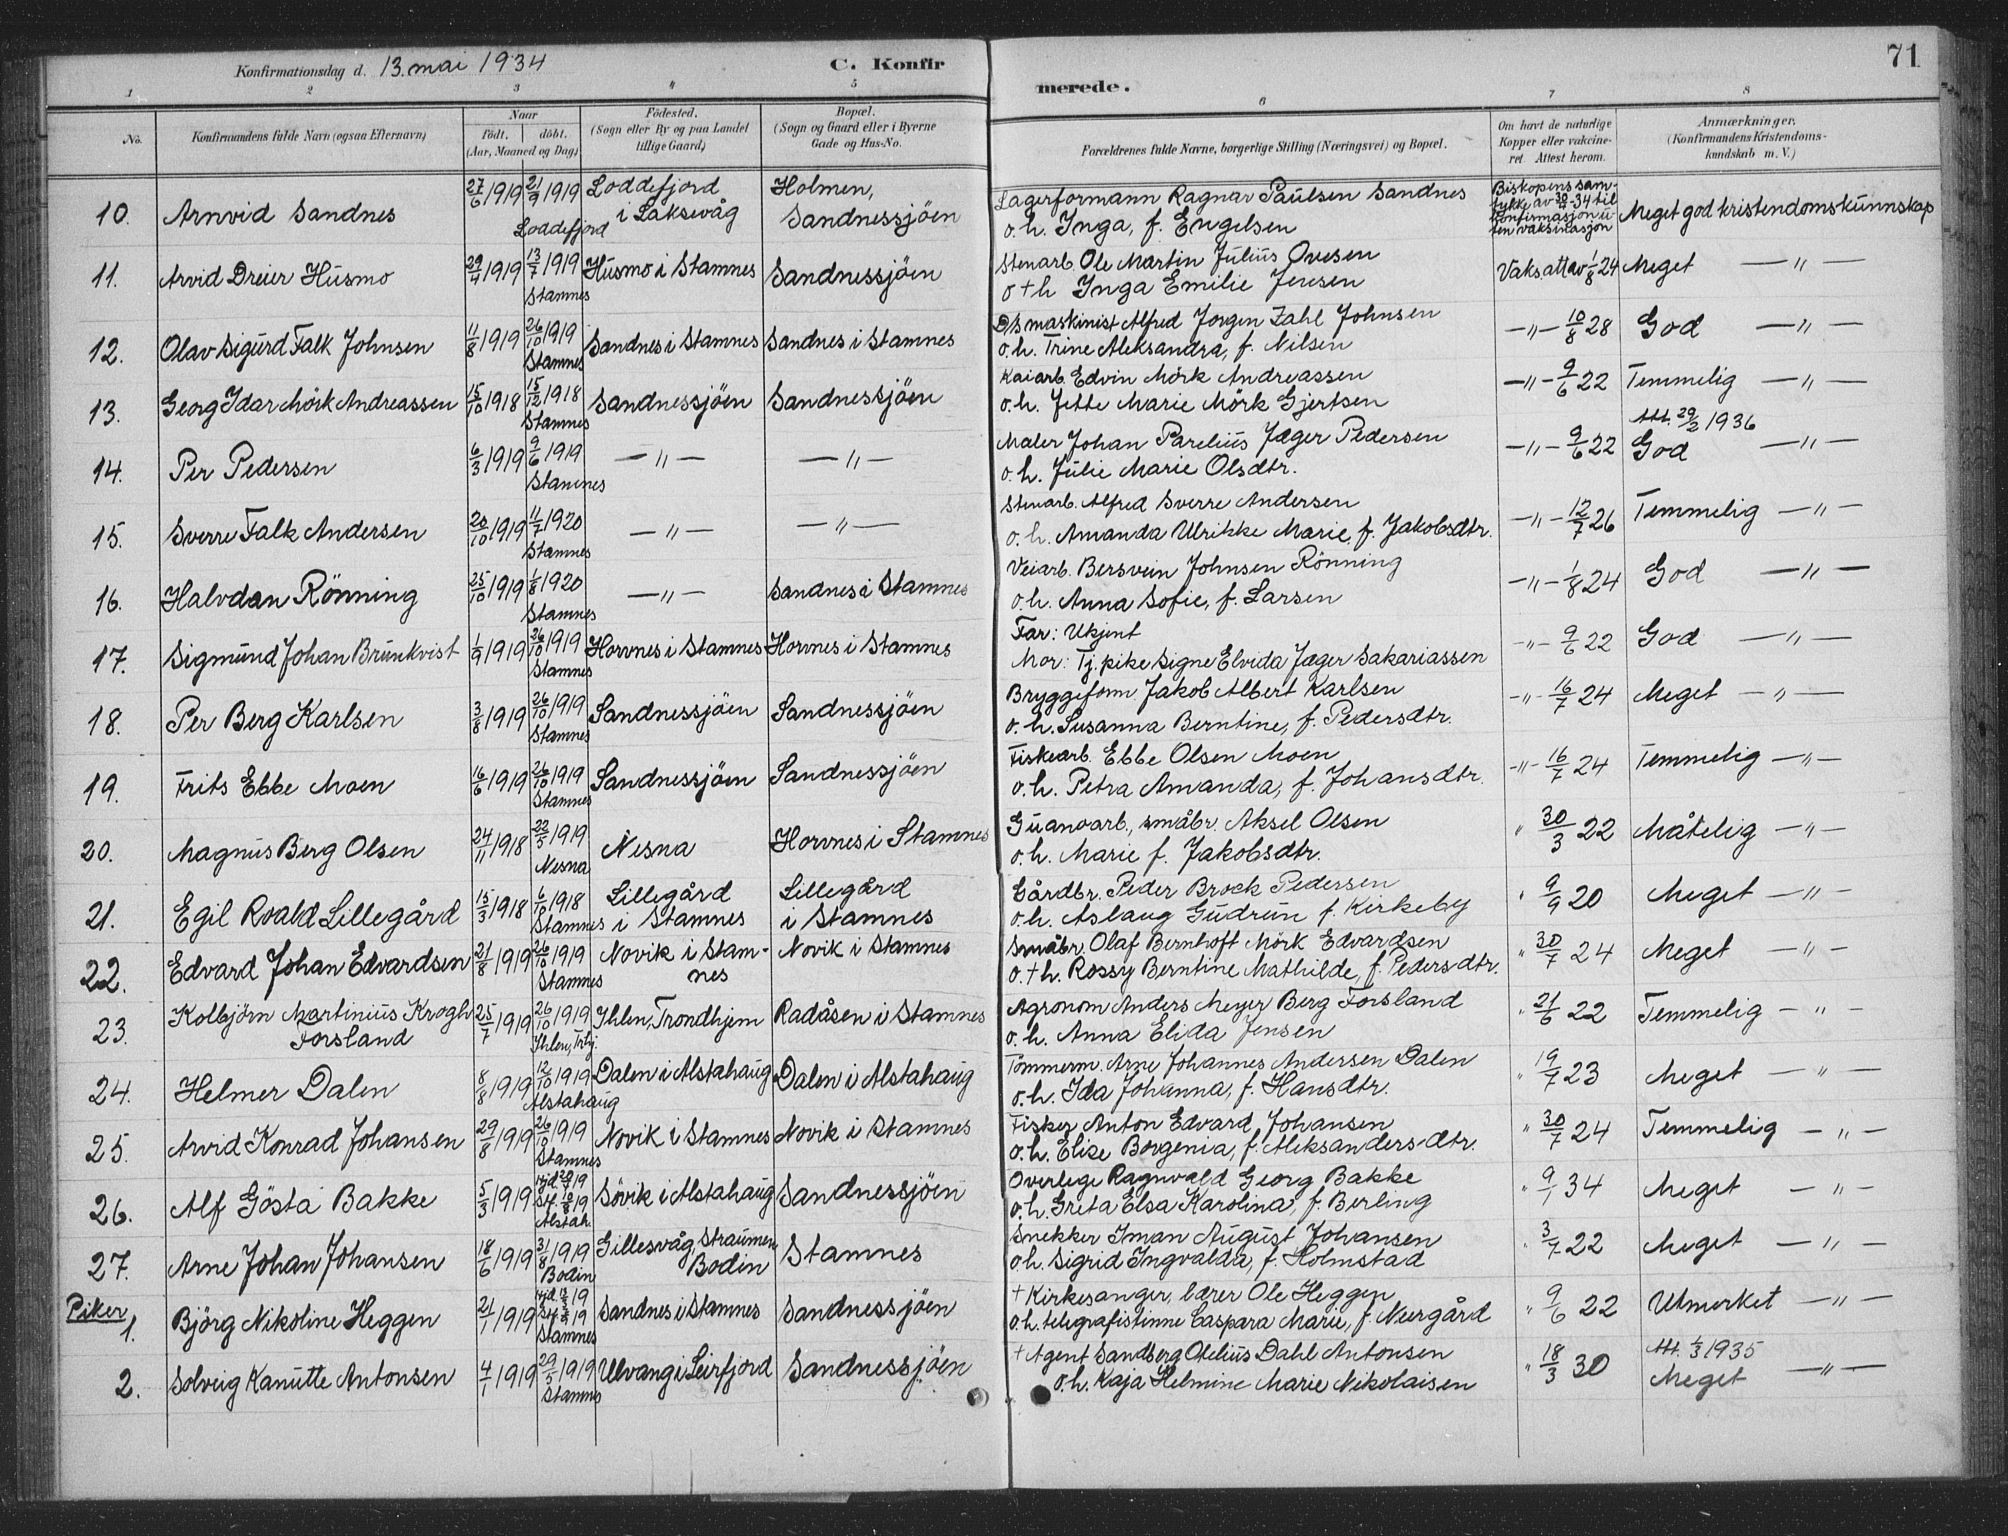 71
Konfirmationsdag d. 13. mai 1934 C. Konfirmerede.
1 2 3 4 5 6 7 8
No. Konfirmandens fulde Navn (ogsaa Efternavn) Naar født. døbt. (Aar, Maaned og Dag) Fødested. (Sogn eller By og paa Landet tillige Gaard) Bopæl. (Sogn og Gaard eller i Byerne Gade og Hus-No. Forældrenes fulde Navne, borgerlige Stilling (Næringsvei) og Bopæl. Om havt de naturlige Kopper eller vakcineret. Attest herom. Anmærkninger. (Konfirmandens Kristendomskundskab m. V.)
10. Arnvid Sandnes 27/6 1919 21/9 1919 Loddefjord Loddefjord i Laksevåg Holmen, Sandnessjöen Lagerformann Ragnar Paulsen Sandnes
o.h. Inga, f. Engelsen Biskopens samtykke av 30/4-34 til konfirmasjon uten vaksinasjon Meget god kristendomskunnskap
11. Arvid Dreier Husmo 29/4 1919 13/7 1919 Stamnes Husmo i Stamnes Sandnessjöen Stenarb. Ole Martin Julius Ovesen
o + h Inga Emilie Jensen Vaks.att av 1/8 24 Meget —"—
12. Olav Sigurd Falk Johnsen 11/8 1919 26/10 1919 Stamnes Sandnes i Stamnes Sandnes i Stamnes D/S maskinist Alfred Jorgen Zahl Johnsen
o.h. Trine Aleksandra, f. Nilsen —"— 10/8 28 God —"—
13. Georg Idar Mörk Andreassen 15/10 1918 15/12 1918 Stamnes Sandnessjöen Sandnessjöen Kaiarb. Edvin Mörk Andreassen
o.h. Jette Marie Mörk Gjertsen —"— 9/6 22 Temmelig —"—
14. Per Pedersen 6/3 1919 9/6 1919 Stamnes —"— —"— Maler Johan Parelius Jæger Pedersen
o.h. Julie Marie Olsdtr. —"— 9/6 22 Att. 29/2 1936 God —"—
15. Sverre Falk Andersen 20/10 1919 11/7 1920 Stamnes —"— —"— Stenarb. Alfred Sverre Andersen
o.h. Amanda Ulrikke Marie, f. Jakobsdtr. —"— 12/7 26 Temmelig —"—
16. Halvdan Rönning 25/10 1919 1/8 1920 Stamnes —"— Sandnes i Stamnes Veiarb. Bersvein Johnsen Rönning
o.h. Anna Sofie, f. Larsen —"— 1/8 24 God —"—
17. Sigmund Johan Brunkvist 1/9 1919 26/10 1919 Stamnes Horvnes i Stamnes Horvnes i Stamnes Far: Ukjent
Mor: Tj.pike Signe Elvida Jæger Sakariassen —"— 9/6 22 God —"—
18. Per Berg Karlsen 3/8 1919 26/10 1919 Stamnes Sandnessjöen Sandnessjöen Bryggeform. Jakob Albert Karlsen
o.h. Susanna Berntine, f. Pedersdtr. —"— 16/7 24 Meget —"—
19. Frits Ebbe Moen 16/6 1919 26/10 1919 Stamnes Sandnessjöen Sandnessjöen Fiskearb. Ebbe Olsen Moen
o.h. Petra Amanda, f. Johansdtr. —"— 16/7 24 Temmelig —"—
20. Magnus Berg Olsen 24/11 1918 22/5 1919 Nesna Nesna Horvnes i Stamnes Guanoarb., småbr. Aksel Olsen
o.h. Marie f. Jakobsdtr. " 30/3 22 Måtelig —"—
21. Egil Roald Lillegård 15/3 1918 1918 Stamnes Lillegård i Stamnes Lillegård i Stamnes Gårdbr. Peder Brock Pedersen
o.h. Aslaug Gudrun f. Kirkeby " 9/9 20 Meget —"—
22. Edvard Johan Edvardsen 21/8 1919 26/10 1919 Stamnes Novik i Stamnes Novik i Stamnes Småbr. Olaf Bernhoft Mörk Edvardsen
o. + h. Rossy Berntine Mathilde, f. Pedersdtr. " 30/7 24 Meget —"—
23. Kolbjörn Martinius Krogh Forsland 25/7 1919 26/10 1919 Ihlen, Trhj. Ihlen, Trondhjem Radåsen i Stamnes Agronom Anders Meyer Berg Forsland
o.h. Anna Elida Jensen " 21/6 22 Temmelig —"—
24. Helmer Dalen 8/8 1919 12/10 1919 Alstahaug Dalen i Alstahaug Dalen i Alstahaug Tömmerm. Arne Johannes Andersen Dalen
o.h. Ida Johanna, f. Hansdtr. " 19/7 23 Meget —"—
25. Arvid Konrad Johansen 29/8 1919 26/10 1919 Stamnes Novik i Stamnes Novik i Stamnes Fisker Anton Edvard Johansen
o.h. Elise Borgenia, f. Aleksandersdtr. " 30/7 24 Temmelig —"—
26. Alf Gösta Bakke 5/3 1919 Alstah. Sövik i Alstahaug Sandnessjöen Overlege Ragnvald Georg Bakke
o.h. Greta Elsa Karolina, f. Berling " 9/1 34 Meget —"—
27. Arne Johan Johansen 18/6 1919 31/8 1919 Bodin Gillesvåg, Straumen Bodin Stamnes Snekker Iman August Johansen
o.h. Sigrid Ingvalda, f. Holmstad " 3/7 22 Meget —"—
Piker
1. Björg Nikoline Heggen 21/1 1919 Stamnes Sandnes i Stamnes Sandnessjöen + Kirkesanger, lærer Ole Heggen
o.h. telegrafistinne Caspara Marie, f. Neergård " 9/6 22 Utmerket —"—
2. Solveig Kanutte Antonsen 4/1 1919 29/5 1919 Stamnes Ulvang i Leirfjord Sandnessjöen + Agent Sandberg Otelius Dahl Antonsen
o.h. Kaja Helmine Marie Nikolaisen " 18/3 30 Att. 1/3 1935 Meget —"—